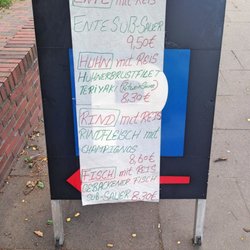 ENTE mit REIS
ENTE SÜß-SAUER
9,50€
HUHN mit REIS
HÜHNERBRUSTFILET
TERIYAKI
8,30€
RIND mit REIS
RINDFLEISCH mit
CHAMPIGNOS
8,60€
FISCH mit REIS
GEBACKENER FISCH
SÜß-SAUER 8,30€